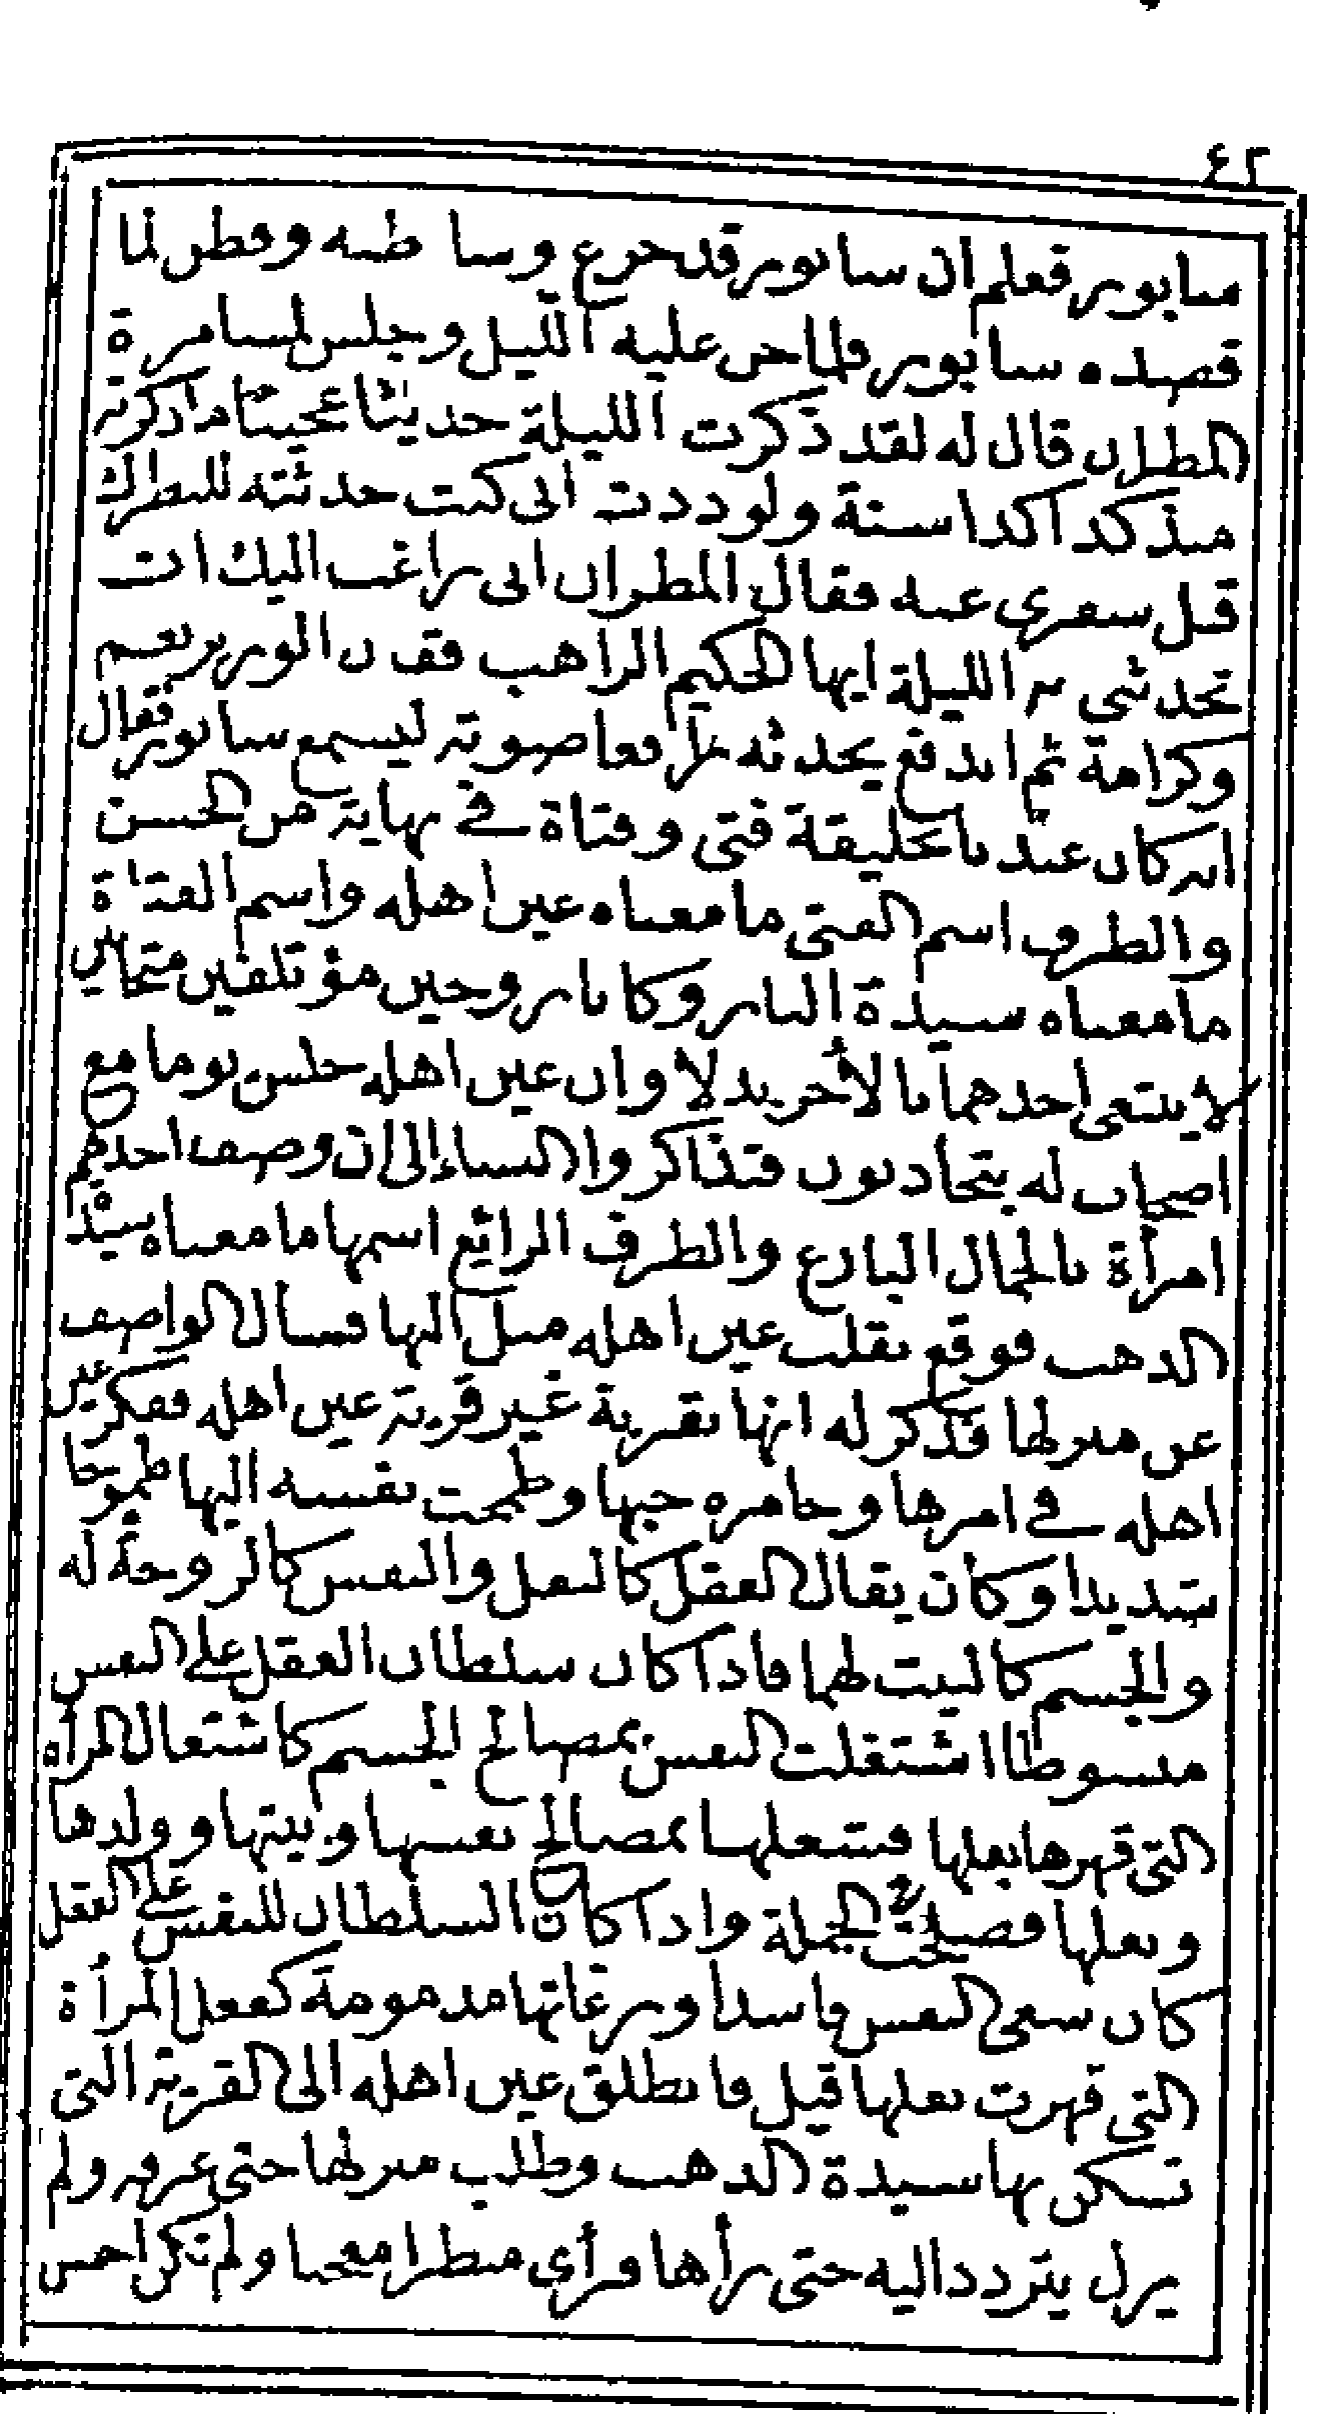 ٤٢
سابور فعلم ان سابور قد جزع وسا ظنه وفطن لما
قصده سابور فلما جن عليه الليل وجلس لمسامرة
المطران قال له لقد ذكرت الليلة حديثا عجيبا ما ذكرته
منذ كذا كذا سنة ولوددت انى كنت حدثته للبطرك
قبل سفرى عنه فقال المطران انى راغب اليك ان
تحدثنى به الليلة ايها الحكيم الراهب فقال الوزير نعم
وكرامة ثم اندفع يحدثه رافعا صوته ليسمع سابور فقال
انه كان عندنا بخليقة فتى وفتاة فى نهاية من الحسن
والظرف اسم الفتى ما معناه عين اهله واسم الفتاة
ما معناه سيدة النار وكانا روحين مؤتلفين متحابين
لا يبتغى احدهما بالأخر بدلا وان عين اهله جلس يوما مع
اصحاب له يتحادثون فتذاكروا النساء إلى ان وصف احدهم
امرأة بالجمال البارع والظرف الرائع اسمها ما معناه سيدة
الذهب فوقع بقلب عين اهله ميل اليها فسال الواصف
عن منزلها فذكر له انها بقرية غير قرية عين اهله ففكر عين
اهله فى امرها وخامره حبها وطمحت نفسه اليها طموحا
شديدا وكان يقال العقل كالبعل والنفس كالزوجة له
والجسم كالبيت لهما فاذا كان سلطان العقل على النفس
مبسوطا اشتغلت النفس بمصالح الجسم كاشتغال المرأه
التى قهرها بعلها فتشغلها بمصالح نفسها وبيتها وولدها
وبعلها فصلحت الجملة واذا كان السلطان للنفس على العقل
كان سعى النفس فاسدا ورغباتها مذمومة كفعل المرأة
التى قهرت بعلها قيل فانطلق عين اهله الى القرية التى
تسكن بها سيدة الذهب وطلب منزلها حتى عرفه ولم
يزل يتردد اليه حتى رأها فرأى منظرا معجبا ولم تكن احسن